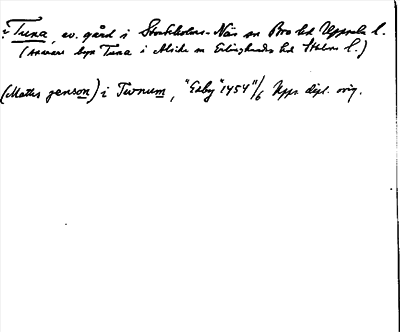 ? Tuna, ev. gård i Stockholms-Näs sn Bro hd Uppsala l.
(snarare byn Tuna i sn Erlinghundra hd Sthlms l.)
(Mattis jenson) i Twnum, "Edby" 1454 11/6 Upps. dipl. orig.